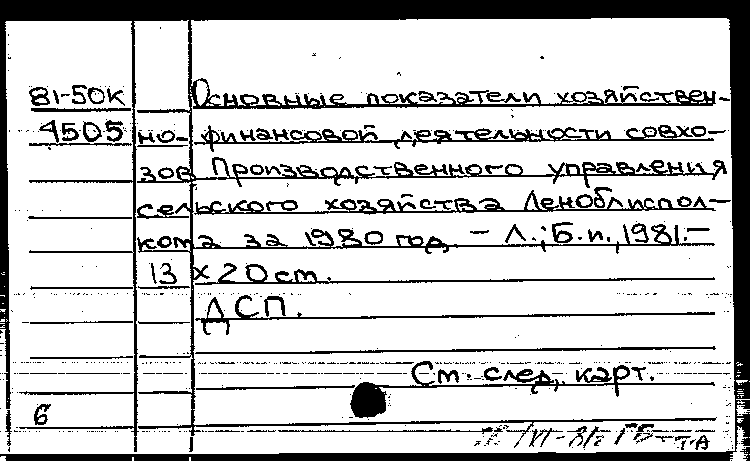 81-50к Основные показатели хозяйствен-
4505 но-финансовой деятельности совхо-
зов Производственного управления
сельского хозяйства Леноблиспол-
кома за 1980 год. - Л.; Б.и., 1981. -
13 х 20 cm.
ДСП.
См. след. карт.
6